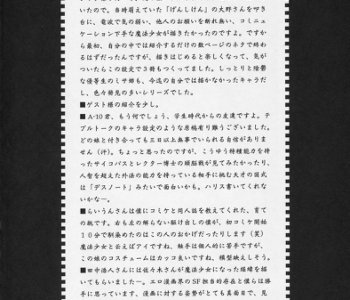 いたので。当時萌えていた「げんしけん」の大野さんを叩き
台に、電波で気の弱い、他人のお願いを断れ無い、コミニュ
ケーション下手な魔法少女が描きたかったのですよ。ですか
ら最初、自分の中では紹介するだけの数ページのネタで終わ
るはずだったんですが、描きはじめると楽しくなって、気が
ついたらこの設定で２本もつくってました。しっとりと陰鬱
な優等生のミサ姫も、今迄の自分では描かなかったキャラだ
し、色々発見の多いシリーズでした。
■ゲスト様の紹介を少し。
■A-10君、もう何でしょう、学生時代からの友達ですよ。テ
ブルトークのキャラ設定のような原稿有り難うございました。
どの娘と付き合っても三日以上無事でいられる自信がありませ
ん（汗）。ちょっと思ったのですが、こうゆう特殊能力を持
ったサイコパスとレクター博士の頭脳戦が見てみたかったり、
人智を超えた外法の能力を持っている相手に挑む天才の図式
は「デスノート」みたいで面白いかも。ハリス書いてくれな
いかなー。
■らいうんさんは僕にコミケと同人誌を教えてくれた、育て
の親です。右も左の解らない駆け出しの僕が、初コミケ開始
１０分で馴染めたのはこの人のおかげだったりします（笑）
魔法少女と云えばアイですね。触手は個人的に苦手ですが、
この娘のコスチュームはカッコ良いですね。模型映えしそう。
■田中浩人さんには佐々木さんが魔法少女になった経緯を描
いてもらいましたー。エロ漫画界のSF担当的存在と僕らは勝
手に思っています。漫画に対する姿勢がとても真面目で、見